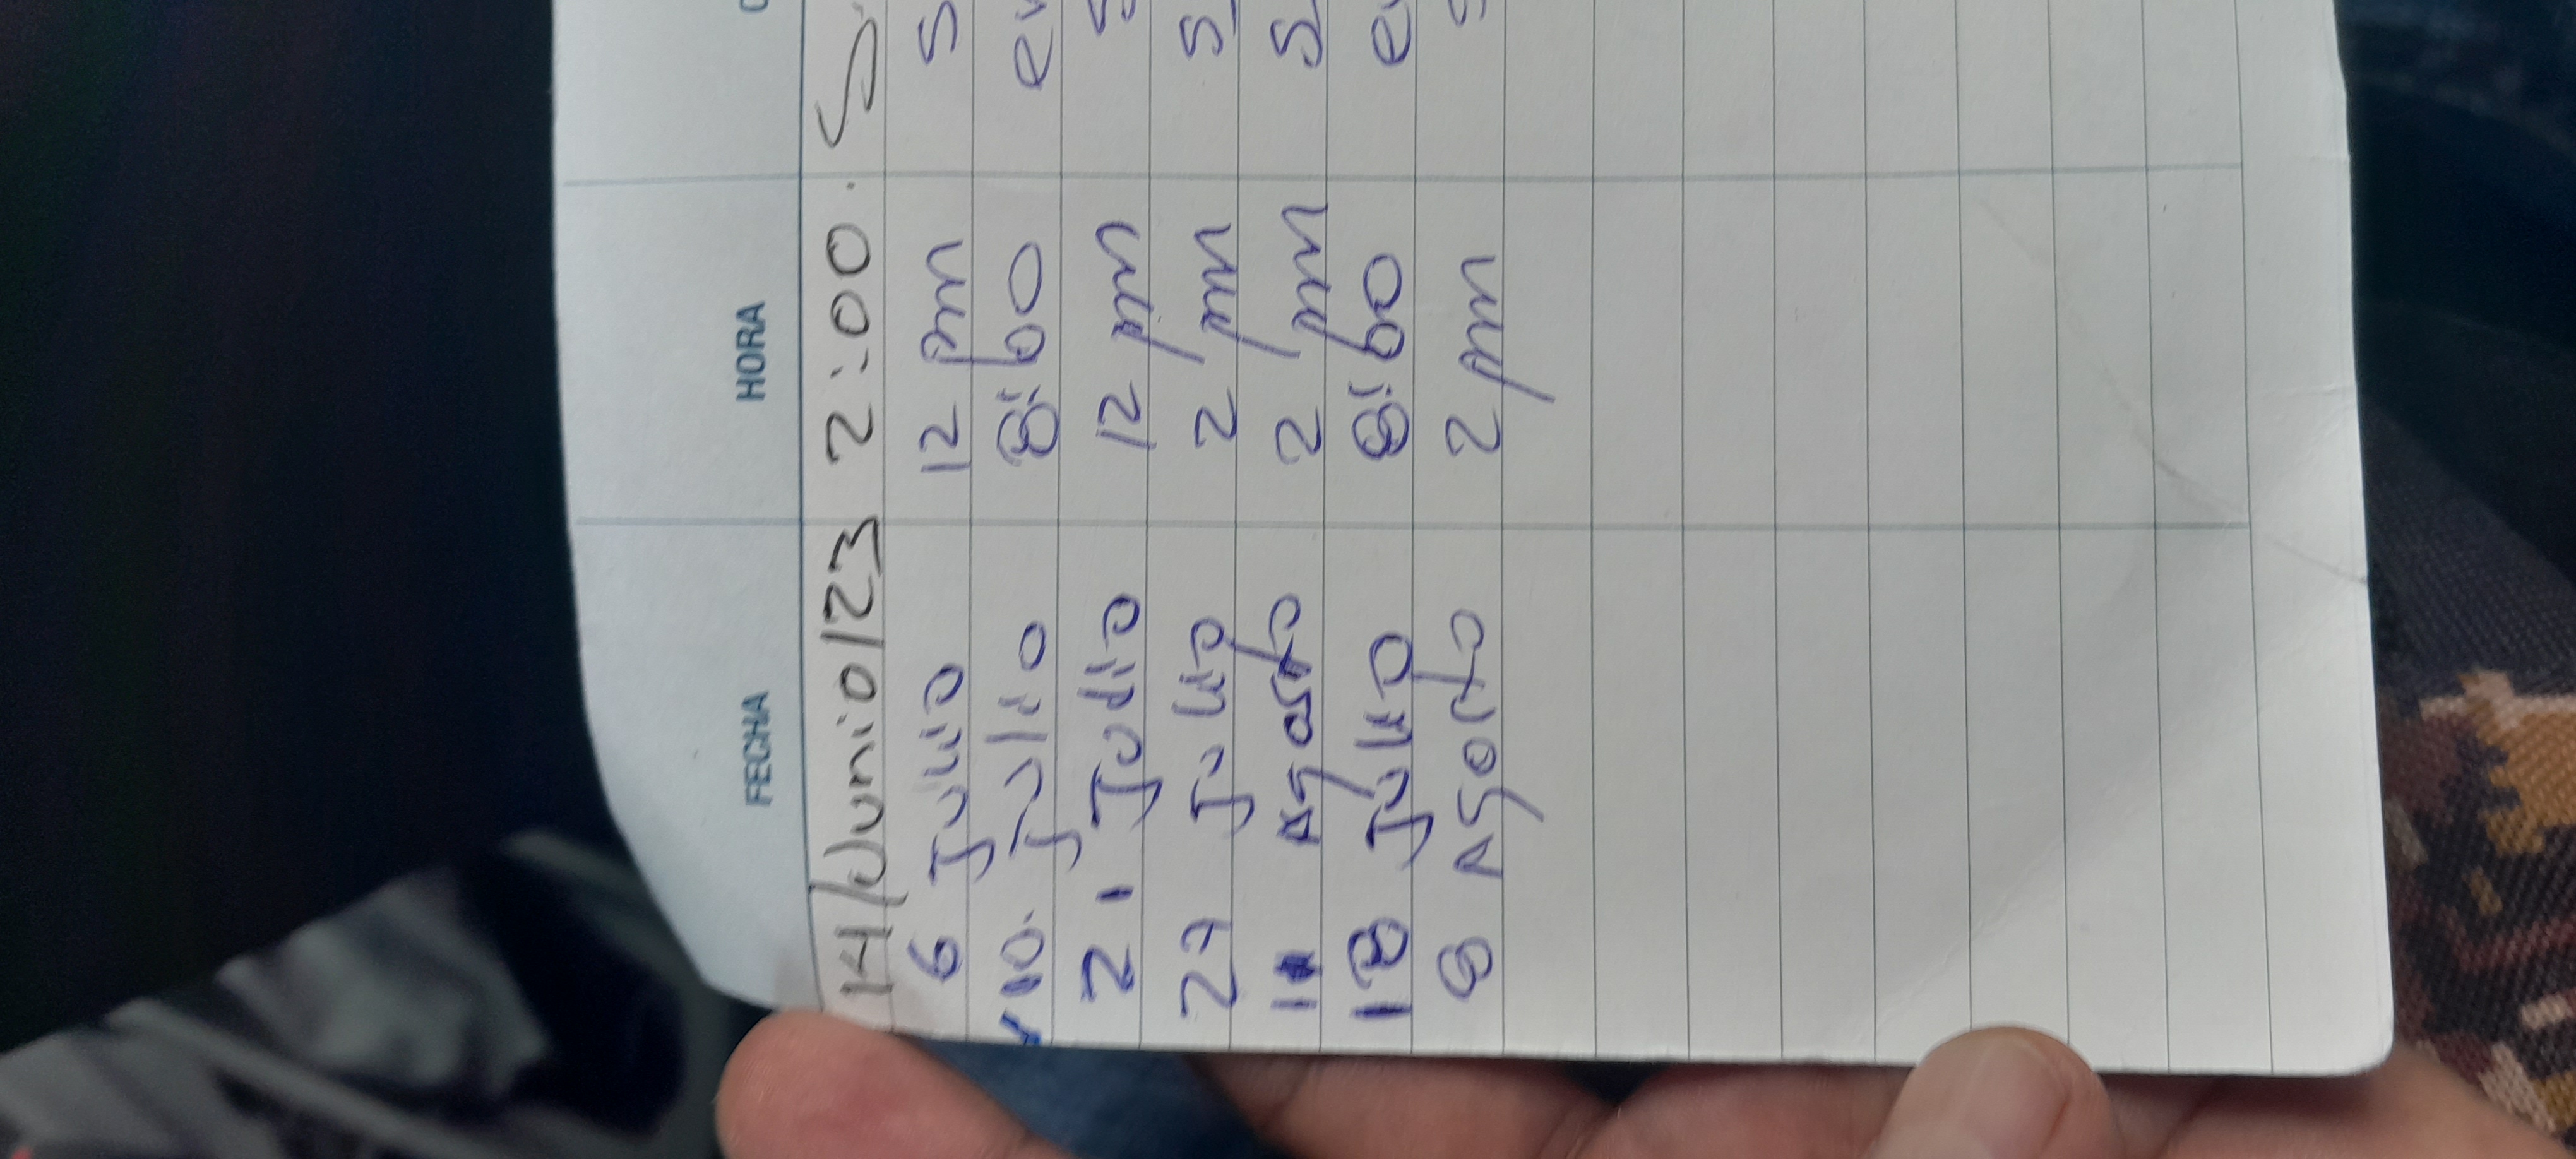 FECHA HORA
14/Junio/23 2:00. S
6 Julio 12 pm S
10. Julio 8:00 ev
21 Julio 12 pm S
27 Julio 2 pm S
11 Agosto 2 pm S
18 Julio 8:00 ev
8 Agosto 2 pm S